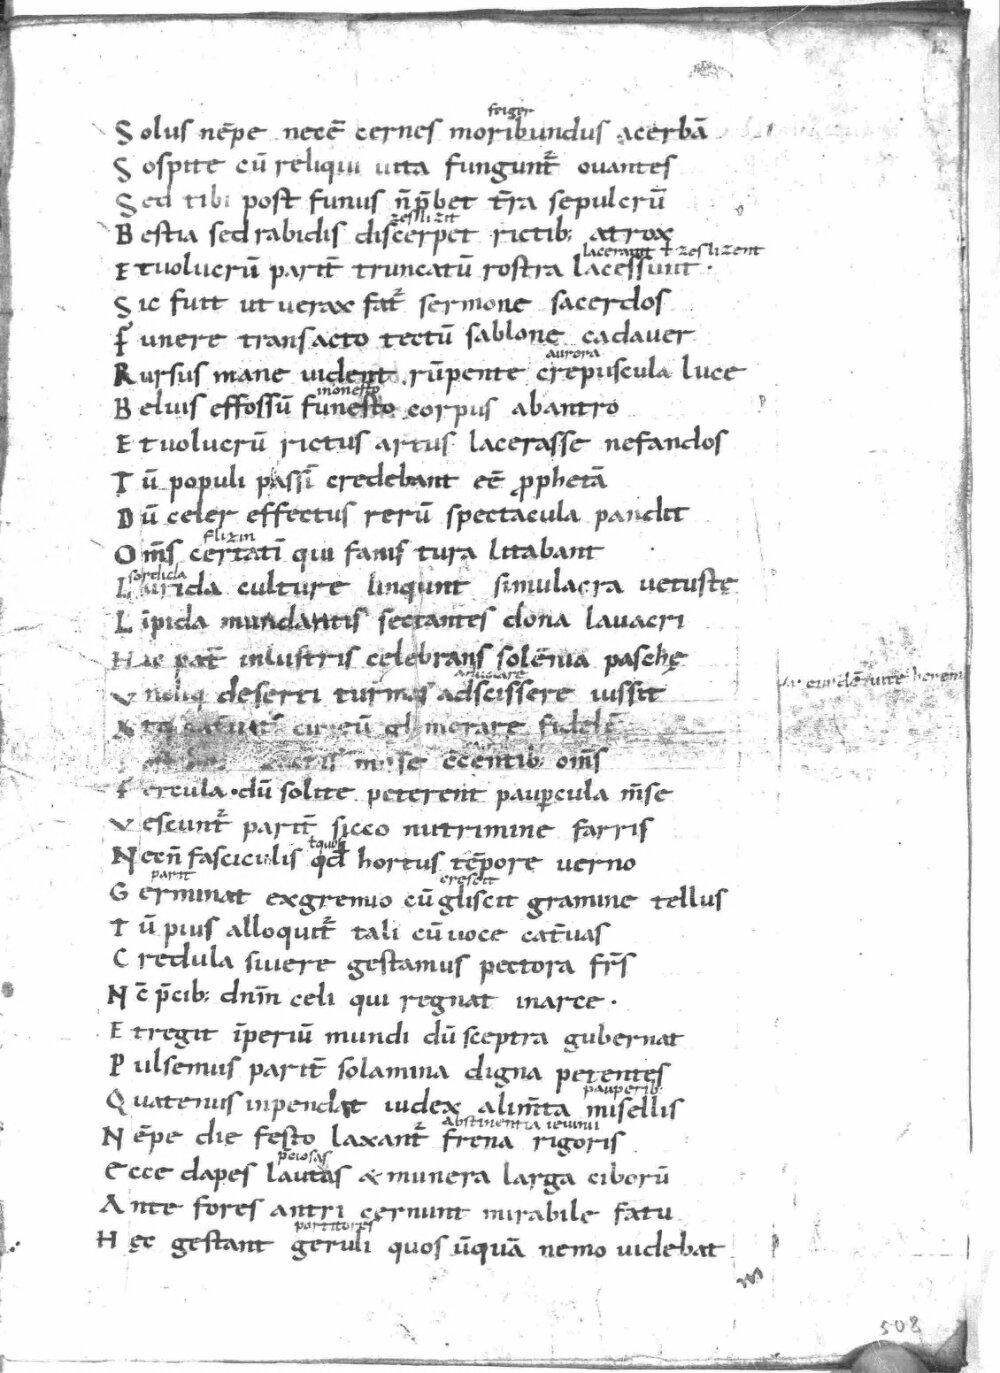 12
feiger
Solus nēpe necē cernes moribundus acerbā
Sospite cū reliqui uita fungunt᷑ ouantes
Sed tibi post funus n̄ p̄bet t̄ra sepulcrū
zeslizit
Bestia sed rabidis discerpet rictib; atrox
lacerant ł zeslizent
Et uolucrū parit̄ truncatū rostra lacessunt.
Sic fuit ut uerax fat᷑ sermone sacerdos
Funere transacto tectū sablone cadauer
aurora
Rursus mane uident rūpente crepuscula luce
monesto
Beluis effossū funesto corpus ab antro
Et uolucrū rictus artus lacerasse nefandos
Tū populi passī credebant eē ꝓphetā
Dū celer effectus rerū spectacula pandit
flizin
Om̄s certatī qui fanis tura litabant
sordida
Lurida culture linqunt simulacra uetustę
Līpida mundantis sectantes dona lauacri
Hic pat̄ inlustris celebrans solēnia paschę
deserti turmas adscissere iussit
fidelē
om̄s
Fercula. dū solite peterent pauꝑcula m̄se
Vescunt᷑ parit̄ sicco nutrimine farris
Necn̄ fasciculis qd̄ hortus tēpore uerno
parit crescit
Germinat ex gremio cū gliscit gramine tellus
Tū pius alloquit᷑ tali cū uoce cat̄uas
Credula siuere gestamus pectora fr̄s
Nc̄ p̄cib; dnīn celi qui regnat in arce.
Et regit īperiū mundi dū sceptra gubernat
Pulsemus parit̄ solamina digna petentes
pauperib;
Quatenus inpendat iudex alim̄ta misellis
abstinentia ieiunii
Nēpe die festo laxant᷑ frena rigoris
p̄ciosas
Ecce dapes lautas & munera larga ciborū
Ante fores antri cernunt mirabile fatu
portitores
Hęc gestant geruli quos ūquā nemo uidebat
508